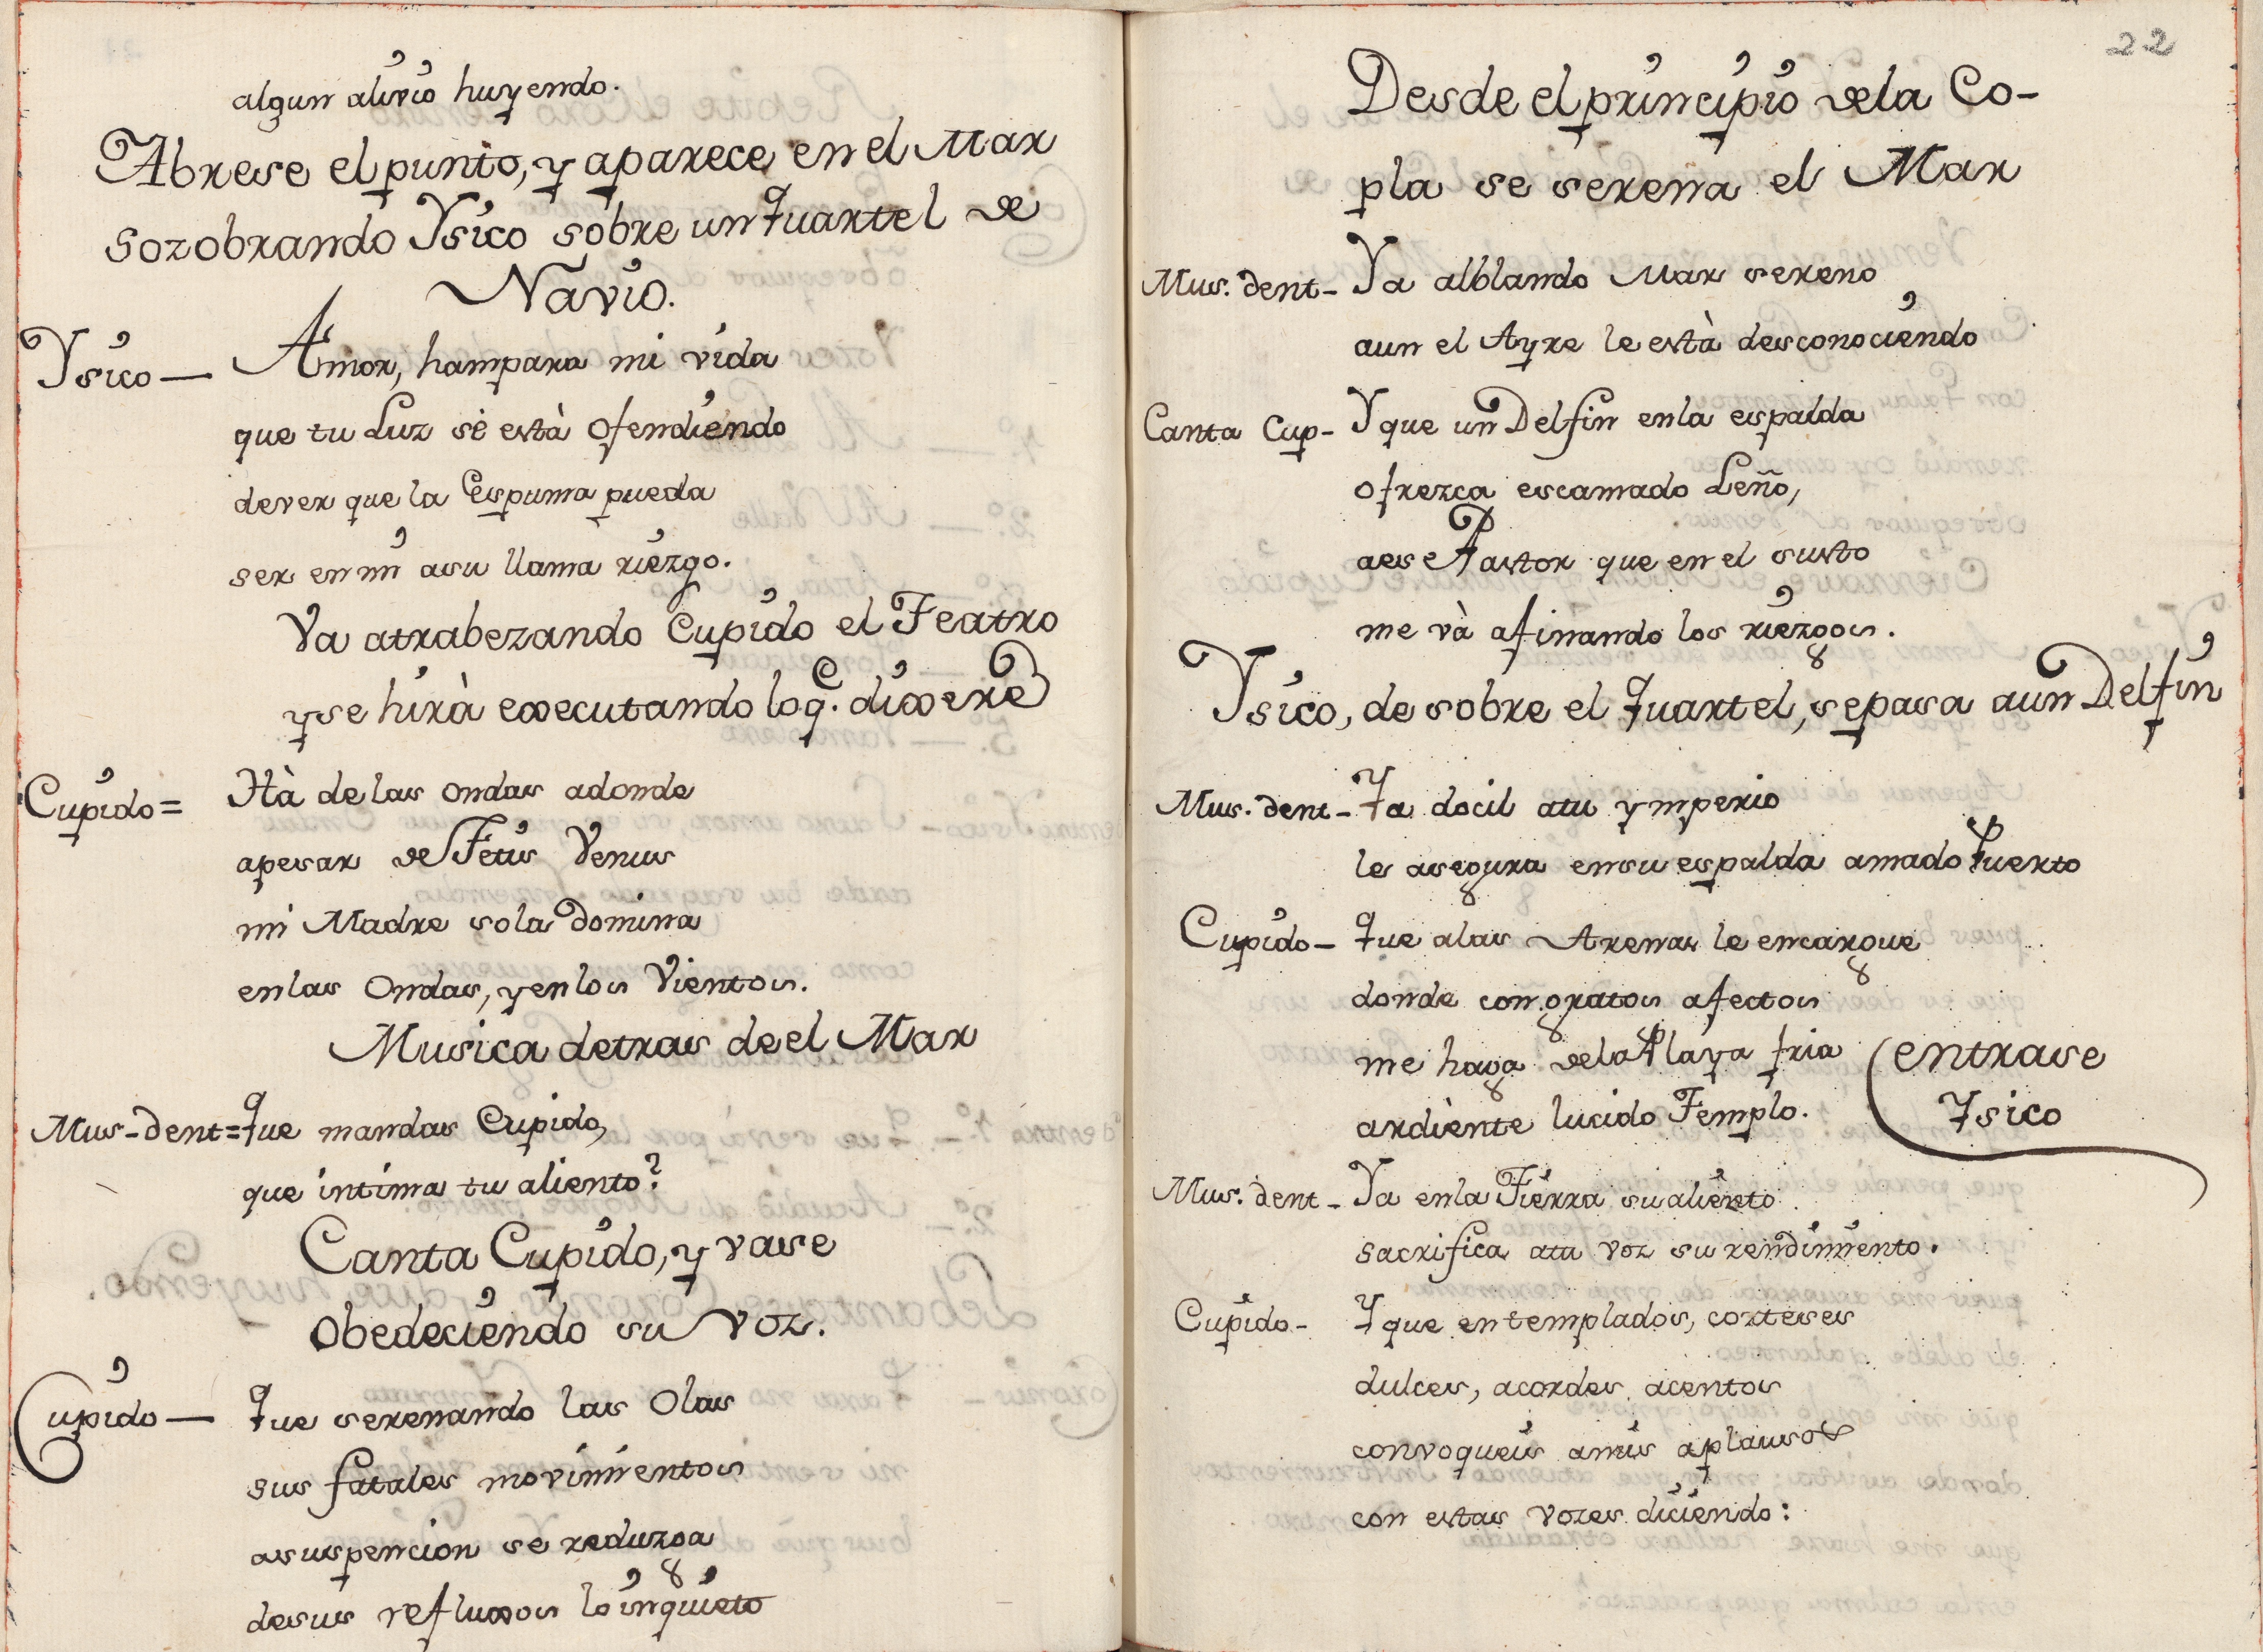 algun alivio huyendo.
Abrese el punto, y aparece en el Mar
sozobrando Ysico sobre un Quartel de
Navio.
Ysico — Amor, hampara mi vida
que tu Luz se està ofendiendo
dever que la Espuma pueda
ser en mi asu llama riezgo.
Va atrabezando Cupido el Teatro
y se hirà executando lo q.e dixere
Cupido = Hà de las ondas adonde
apesar de Tetis Venus
mi Madre sola Domina
enlas Ondas, y enlos Vientos.
Musica detras de el Mar
Mus-dent = Que mandas Cupido,
que intima tu aliento?
Canta Cupido, y vase
obedeciendo su voz.
Cupido — Que serenando las Olas
sus fatales movimientos
asuspencion se reduzga
desus refluxos lo inquieto
22
Desde el principio dela Co-
pla se serena el Mar
Mus. dent - Ya alblando Mar sereno
aun el Ayre le està desconociendo
Canta Cup - Y que un Delfin enla espalda
ofrezca escamado Leño,
aese Pastor que en el susto
me và afinando los riezgos.
Ysico, de sobre el Quartel, sepasa aun Delfin
Mus. dent - Ya docil atu ymperio
le asegura ensu espalda amado Puerto
Cupido - Que alas Arenas le encargue
donde con gratos afectos
me haga dela Playa fria (entrase
Ysico
ardiente lucido Templo.
Mus. dent - Ya enla Tierra su aliento
sacrifica atu voz su rendimiento.
Cupido - Y que en templados, corteses
dulces, acordes acentos
convoqueis amis aplausos
con estas vozes diciendo: